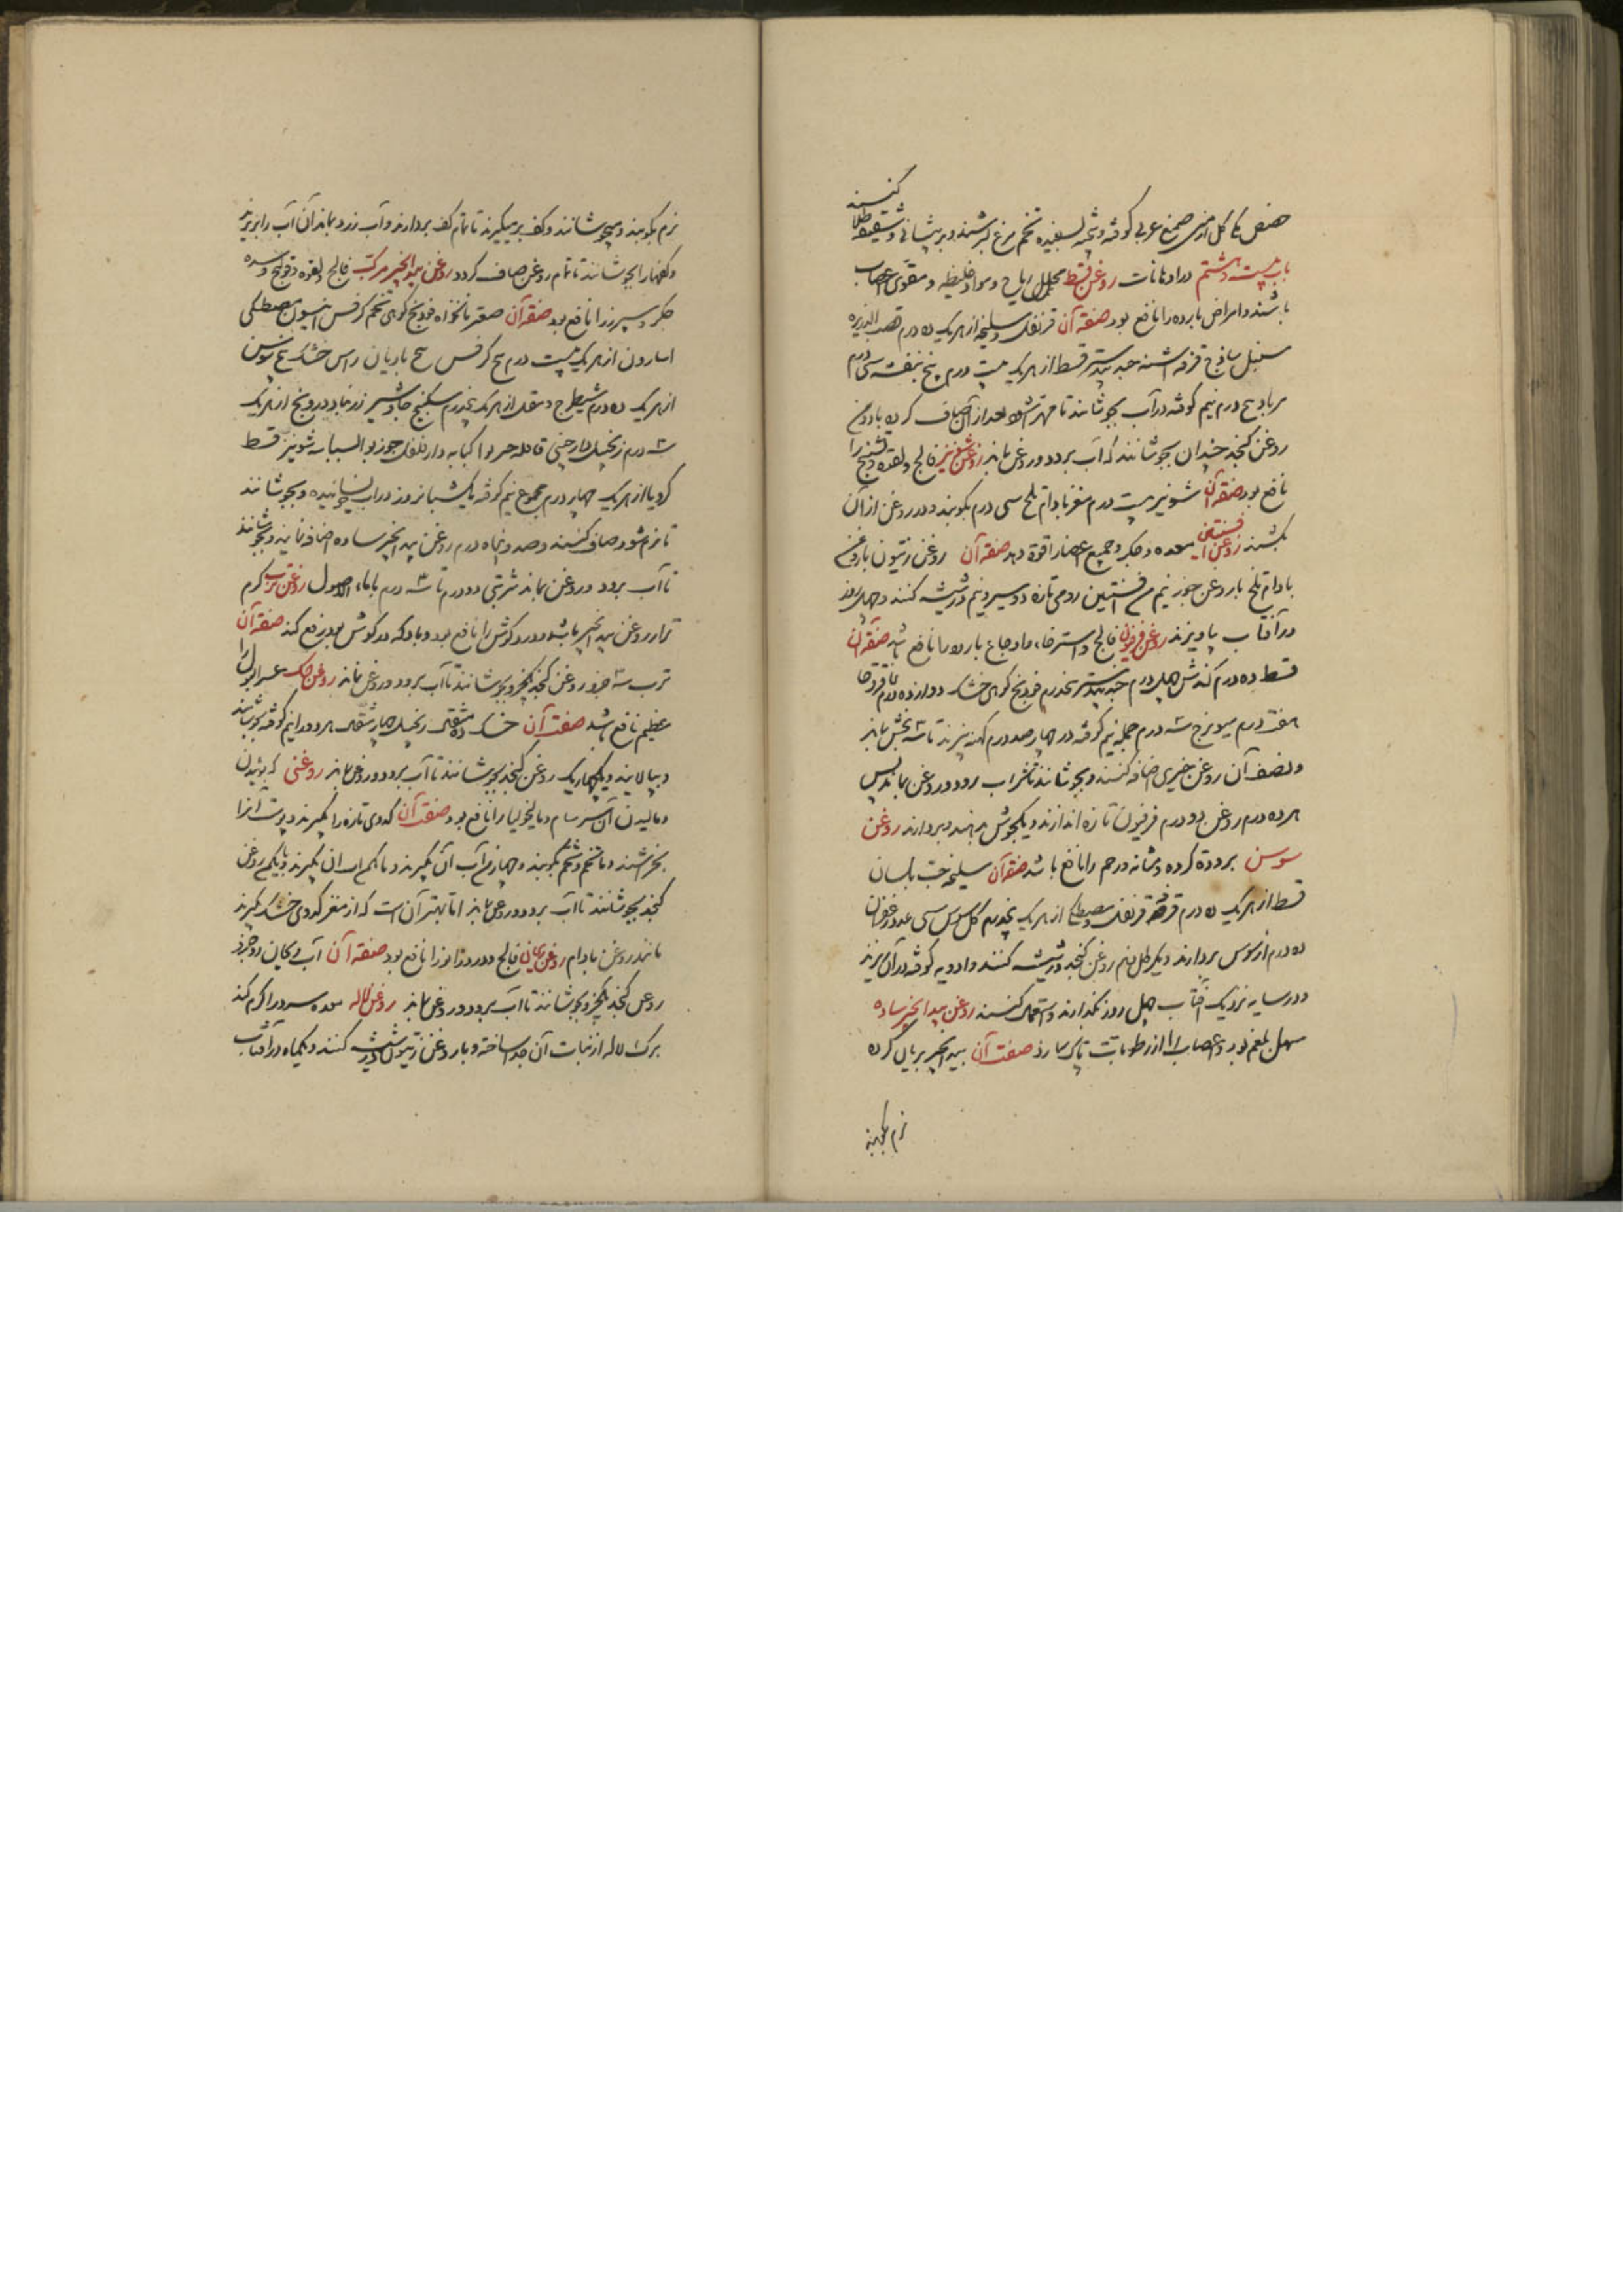 حضض مکی گل ارمنی صمغ عربی کوفته و بیخته بسفیده تخم مرغ بسرشند و بر پیشانی و شقیقه طلا کنند
باب بیست و هشتم در ادهانات روغن قسط محلل ریاح و مواد غلیظه و مقوی اعصاب
باشد و امراض بارده را نافع بود صفة آن قرنفل و سلیخه از هر یک ده درم قصب الذریره
سنبل ساذج قرفه اشنه جندبیدستر قسط از هر یک بیست درم بیخ بنفشه سی درم
درم نیم کوفته در آب بجوشانند تا مهرا شود بعد از آن صاف کرده با دو من
روغن کنجد چندان بجوشانند که آب برود و روغن بماند روغن شونیز فالج و لقوه و تشنج را
نافع بود صفة آن شونیز بیست درم مغز بادام تلخ سی درم بکوبند و در روغن از آن
بکشند روغن افسنتین معده و جگر و جمیع اعضا را قوة دهد صفة آن روغن زیتون با روغن
بادام تلخ با روغن جوز نیم من افسنتین رومی تازه دو سیر و نیم در شیشه کنند و چهل روز
در آفتاب بیاویزند روغن فرفیون فالج و استرخا و اوجاع بارده را نافع باشد صفة آن
قسط ده درم کندش چهل درم جندبیدستر پنجدرم فودنج کوهی خشک دوازده درم عاقرقرحا
هفت درم میویزج سه درم جمله نیم کوفته در چهار صد درم کهنه بپزند تا سه بخش بماند
و نصف آن روغن خیری اضافه کنند و بجوشانند تا شراب رود و روغن بماند پس
هر ده درم روغن دو درم فرفیون تازه اندازند و یکجوش بدهند و بردارند روغن
سوسن برودة گرده و مثانه و رحم را نافع باشد صفة آن سلیخه حب بلسان
قسط از هر یک ده درم قرفه قرنفل و مصطکی از هر یک پنجدرم گل سوسن سی عدد زعفران
ده درم از سوسن بردارند و یکرطل و نیم روغن کنجد در شیشه کنند و ادویه کوفته در آن بریزند
و در سایه نزدیک آفتاب چهل روز بگذارند و استعمال کنند روغن بیدانجیر ساده
مسهل بلغم بود و اعصاب را از رطوبات پاک سازد صفت آن بیدانجیر بریان کرده
نرم بکوبند
نرم بکوبند و بجوشانند و کف برمیگیرند تا تمام کف بردارند و آب زرد بماند آن آب را بریزند
و کفها را بجوشانند تا تمام روغن صاف گردد روغن بیدانجیر مرکب فالج و لقوه و قولنج و سده
جگر و سپرز را نافع بود صفة آن صعتر نانخواه فودنج کوهی تخم کرفس انیسون مصطکی
اسارون از هر یک بیست درم بیخ کرفس بیخ بادیان راس خشک بیخ سوسن
از هر یک ده درم شیطرج و مقل از هر یک پنجدرم سکبینج جاوشیر زرنباد درونج از هر یک
سه درم زنجبیل دارچینی قاقله کبابه دارفلفل جوزبوا بسباسه شونیز قسط
کرویا از هر یک چهار درم مجموع نیم کوفته یکشبانروز در آب بخیسانیده و بجوشانند
تا نرم شود و صاف کنند و صد و پنجاه درم روغن بیدانجیر ساده اضافه نمایند و بجوشانند
تا آب برود و روغن بماند شربتی دو درم تا سه درم با ماء الاصول روغن ترب گرم
تر از روغن بیدانجیر باشد و درد گوش را نافع بود و باد که در گوش بود رفع کند صفة آن
ترب سه جزو روغن کنجد یکجزو بجوشانند تا آب برود و روغن بماند روغن خسک عسر البول را
عظیم نافع باشد صفت آن خسک ده مثقال زنجبیل چهار مثقال هر دو را نیم کوفته بجوشانند
و بپالایند و یکچهاریک روغن کنجد بجوشانند تا آب برود و روغن بماند روغنی که بوئیدن
و مالیدن آن سرسام و مالیخولیا را نافع بود صفت آن کدوی تازه را بگیرند و پوست آنرا
بخراشند و با تخم و شحم بکوبند و چهار من آب آن بگیرند و با یکمن روغن
کنجد بجوشانند تا آب برود و روغن بماند اما بهتر آن است که از مغز کدوی خشک بگیرند
مانند روغن بادام روغن ریحان فالج و درد زانو را نافع بود صفة آن آب ریحان دو جزو
روغن کنجد یکجزو بجوشانند تا آب برود و روغن بماند روغن لاله معده سرد را گرم کند
برگ لاله از نبات آن جدا ساخته و با روغن زیتون در شیشه کنند و یکماه در آفتاب